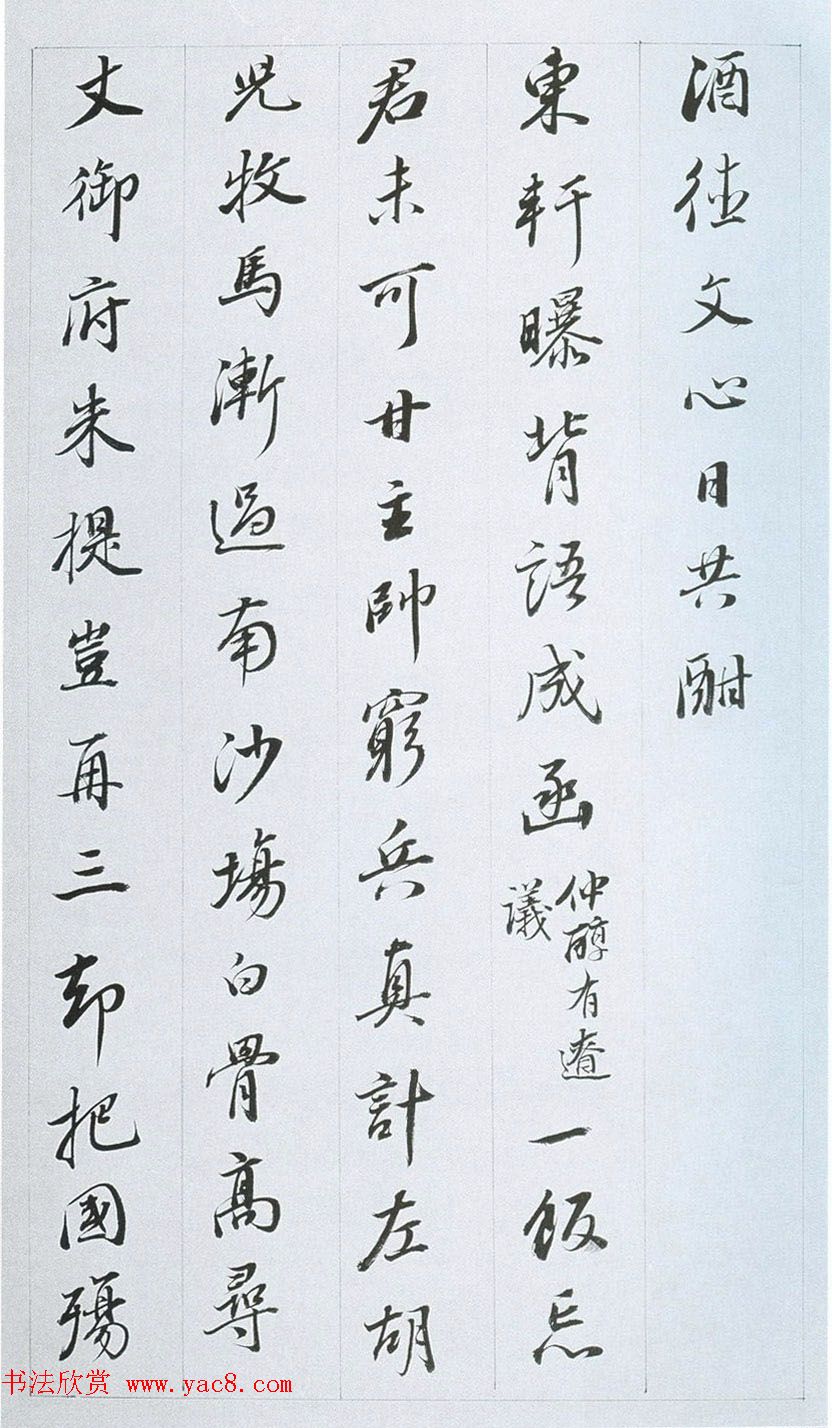 酒德文心日共酣
東軒曝背語成函仲醇有遼議一飯忘
君未可甘主帥窮兵真計左胡
兒牧馬漸過南沙場白骨高尋
丈御府朱提豈再三却把國殤
书法欣赏 www.yac8.com